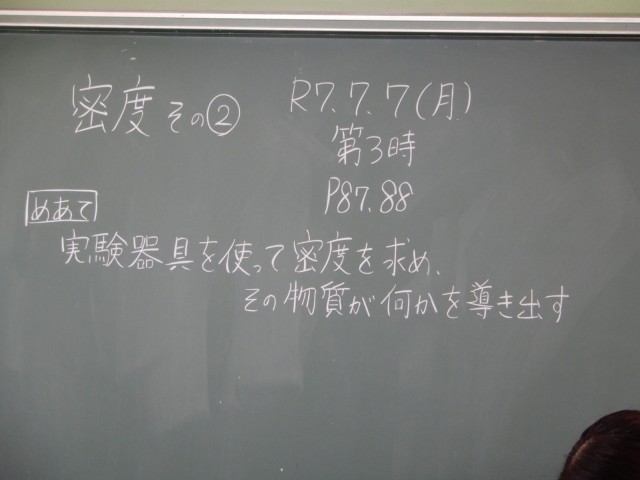 密度その②
R7.7.7(月)
第3時
P87.88
めあて
実験器具を使って密度を求め、
その物質が何かを導き出す